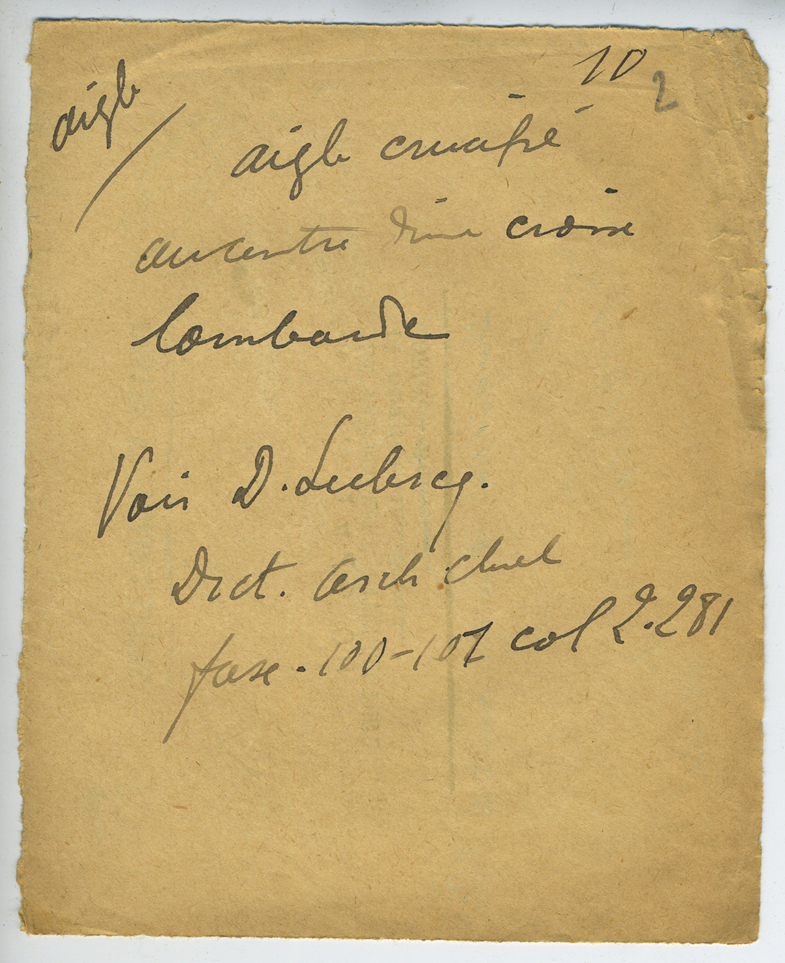 10
2
aigle
aigle crucifié
au centre d'une croix
lombarde
Voir D. Leclercq.
Dict. arch chret
fasc. 100-101 col 2.281